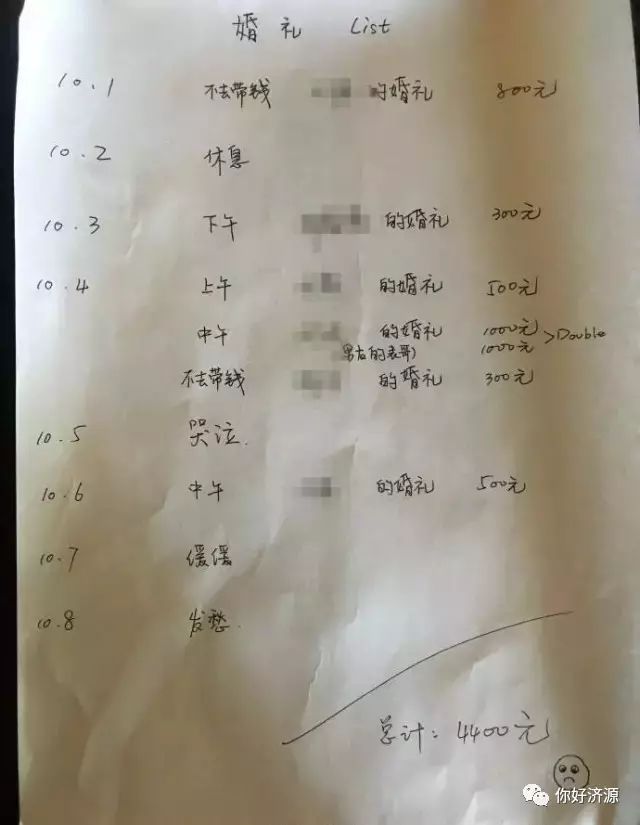 婚礼 List
10.1 不去带钱 的婚礼 800元
10.2 休息
10.3 下午 的婚礼 300元
10.4 上午 的婚礼 500元
中午 的婚礼 1000元 >Double
男友的表哥) 1000元
不去带钱 的婚礼 300元
10.5 哭泣.
10.6 中午 的婚礼 500元
10.7 缓缓
10.8 发愁.
总计: 4400元
你好济源